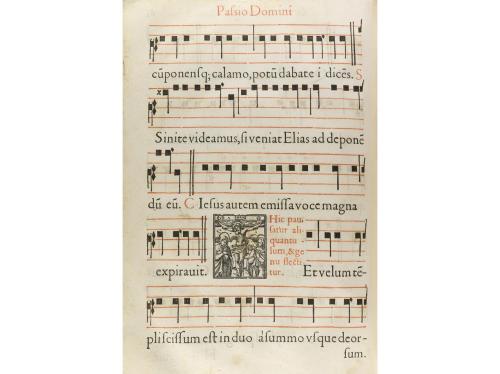 Passio Domini
cūponensq; calamo, potū dabat e i dicēs. S
Sinite videamus, si veniat Elias ad deponē
dū eū. C Iesus autem emissa voce magna
Hic pau
satur ali
quantu
lum, & ge
nu flecti
tur.
expirauit. Et velum tē-
pli scissum est in duo à summo vsque deor-
sum.